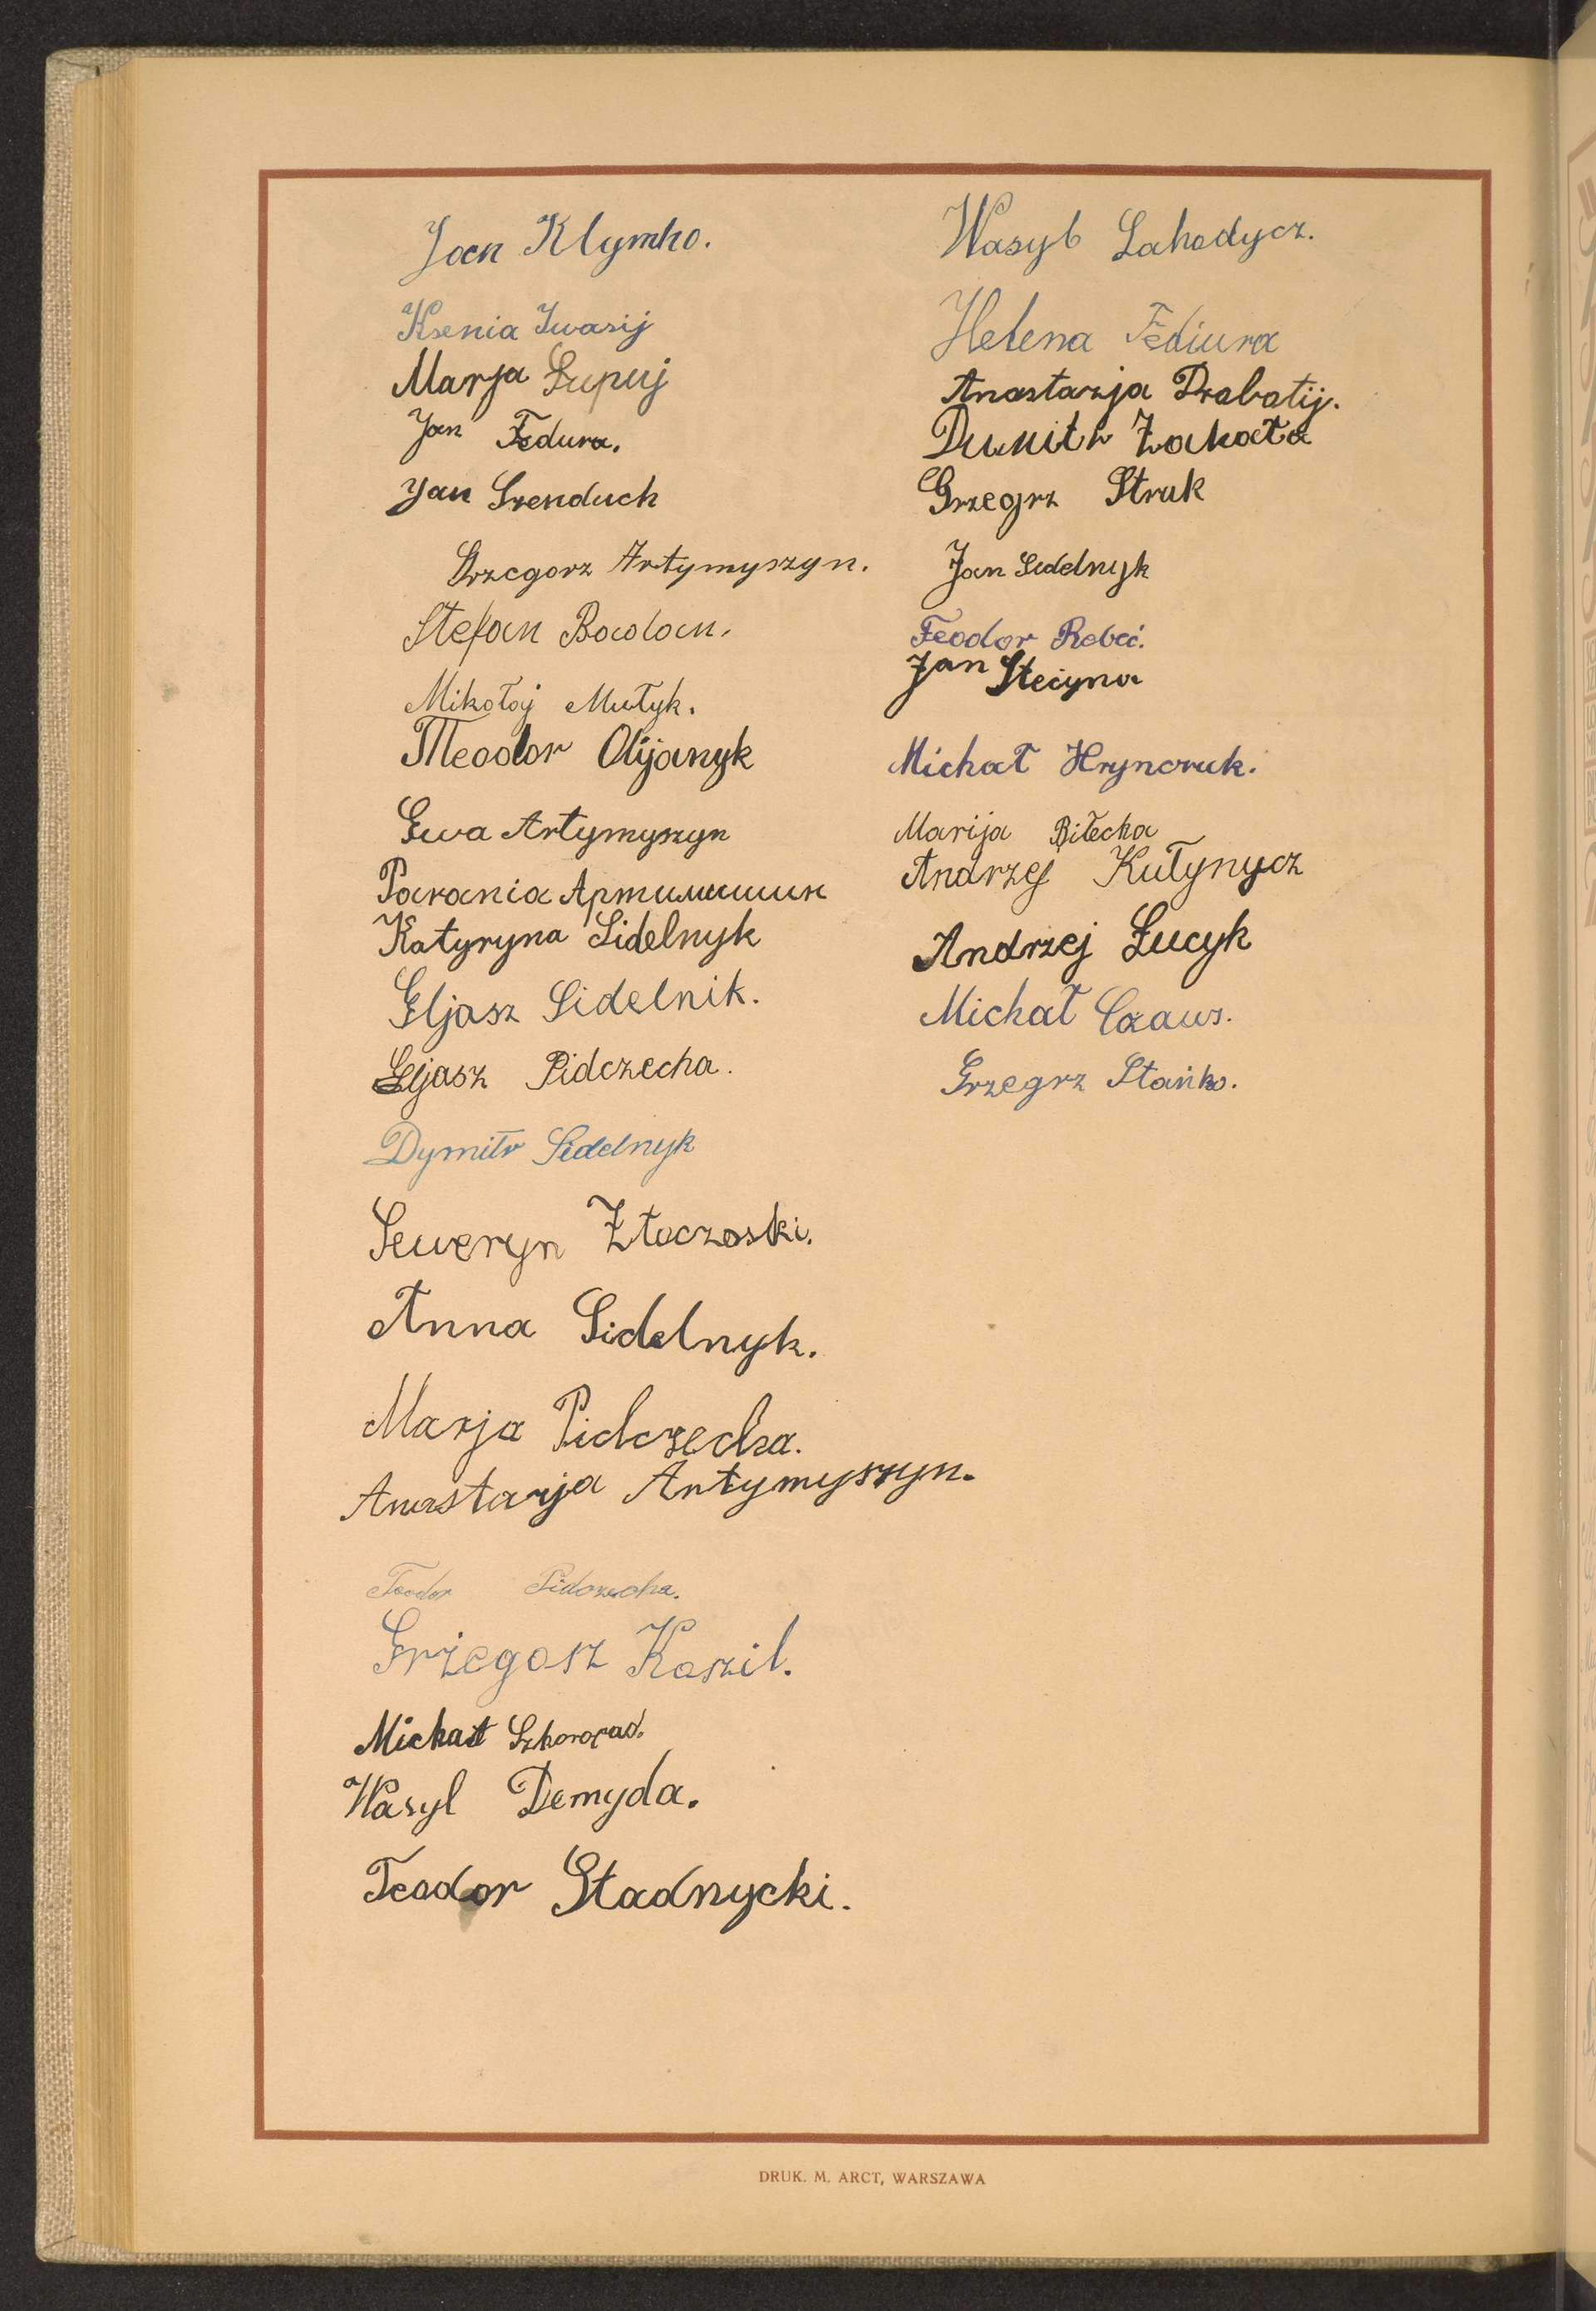 Jan Klymko.
Ksenia Iwasij
Marja Łupuj
Jan Fedura.
Jan Szenduch
Grzegorz Artymyszyn.
Stefan Bodan.
Mikołaj Mułyk.
Theodor Olijanyk
Ewa Artymyszyn
Parania Артимишин
Katyryna Sidelnyk
Eljasz Sidelnik.
Eljasz Pidczecha.
Dymitr Sidelnyk
Seweryn Złoczoski.
Anna Sidelnyk.
Marja Pidczecha.
Anastazja Artymyszyn.
Teodor Pidczecha.
Grżegosz Koszil.
Michał
Wasyl Demyda.
Teodor Stadnycki.
Wasyl Lahodycz.
Helena Fediura
Anastazja Drabatij.
Dumitr Zakała
Grzegrz Struk
Jan Sidelnyk
Feodor
Jan Steciyna
Michał Hrynczuk.
Marija Biłecka
Andrzej Kułynycz
Andrzej Łucyk
Michał
Grzegrz Stańko.
DRUK. M. ARCT, WARSZAWA